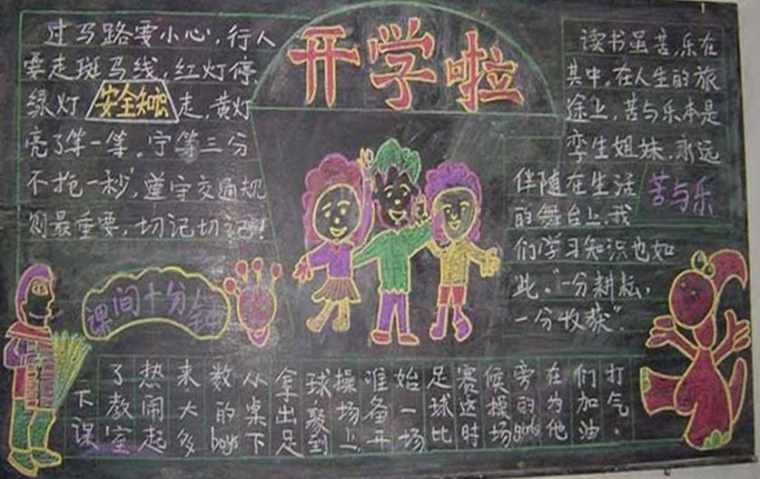 开学啦
过马路要小心,行人
要走斑马线,红灯停
绿灯走,黄灯
亮了等一等,宁等三分
不抢一秒,遵守交通规
则最重要,切记切记!
安全知识
读书虽苦,乐在
其中,在人生的旅
途上,苦与乐本是
孪生姐妹,永远
伴随在生活
的舞台上,我
们学习知识也如
此,“一分耕耘,
一分收获”.
苦与乐
课间十分钟
下课
了教室
热闹起
来大多
数的boys
从桌下
拿出足
球聚到
操场上,
准备开
始一场
足球比
赛这时
候操场
旁的girls
在为他
们加油
打气。